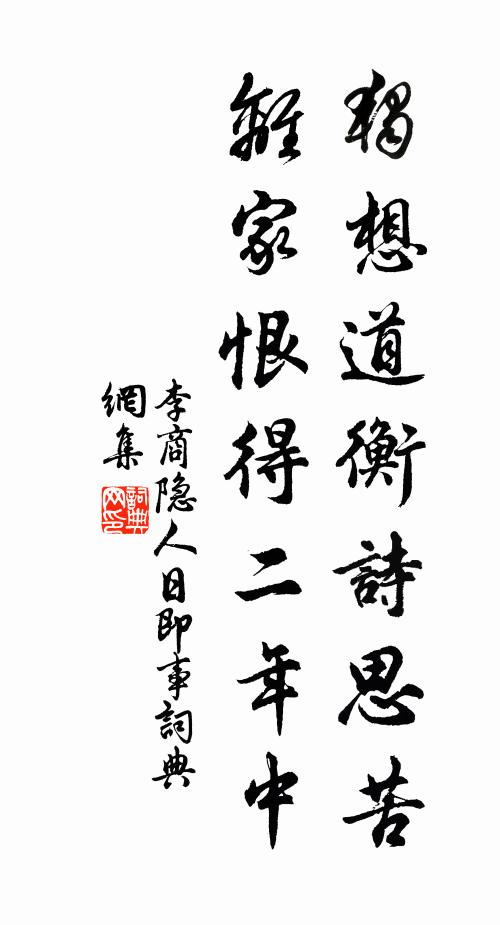 獨想道衡詩思苦
離家恨得二年中
李商隐人日即事詞典
網集
詞典
网印